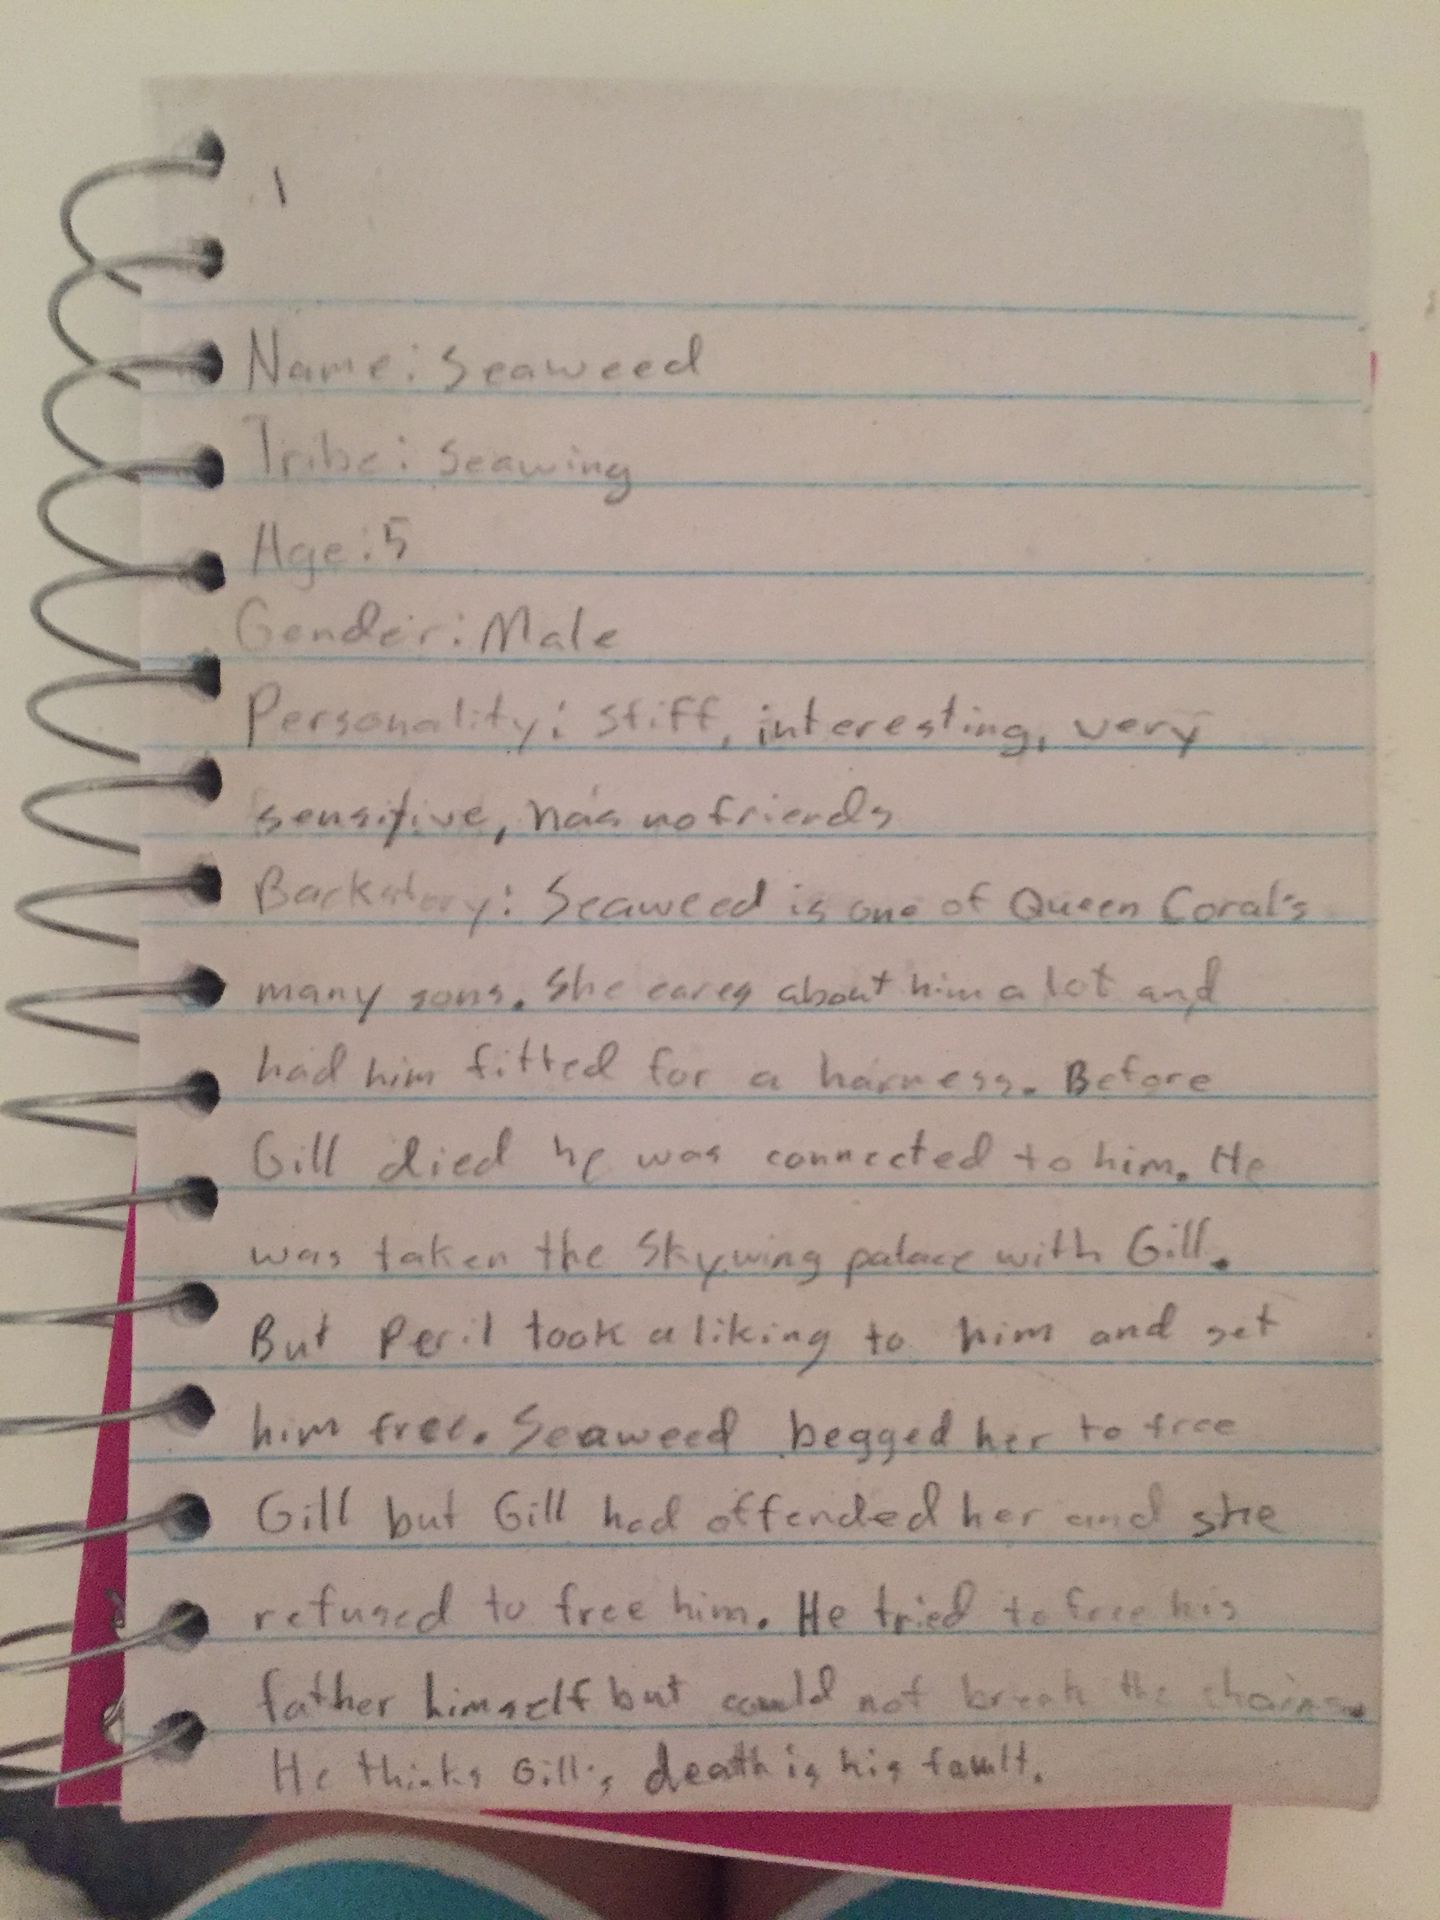 1
Name: Seaweed
Tribe: Seawing
Age: 5
Gender: Male
Personality: stiff, interesting, very
sensitive, has no friends
Backstory: Seaweed is one of Queen Coral's
many sons. She cares about him a lot and
had him fitted for a harness. Before
Gill died he was connected to him. He
was taken the Skywing palace with Gill.
But Peril took a liking to him and set
him free. Seaweed begged her to free
Gill but Gill had offended her and she
refused to free him. He tried to free his
father himself but could not break the chains.
He thinks Gill's death is his fault.